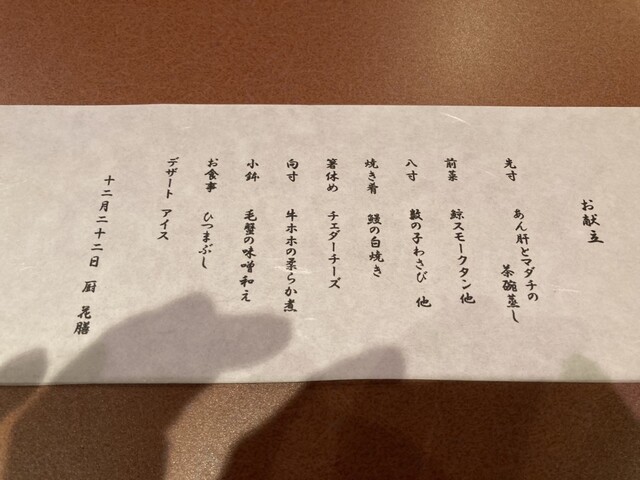 お献立
先寸 あん肝とマダチの
茶碗蒸し
前菜 鯨スモークタン他
八寸 数の子わさび 他
焼き肴 鰻の白焼き
箸休め チェダーチーズ
向寸 牛ホホの柔らか煮
小鉢 毛蟹の味噌和え
お食事 ひつまぶし
デザート アイス
十二月二十二日 厨 花膳